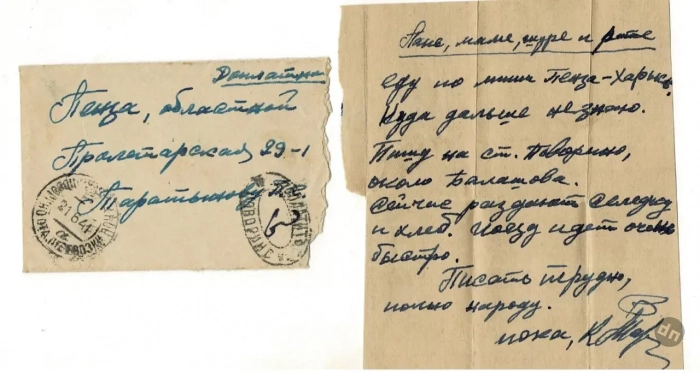 Доплатное
Пенза, областной
Пролетарская 29-1
Паратынову
21 6 41
Папе, маме, шуре и рите
еду по линии Пенза-Харьков
куда дальше не знаю.
Пишу на ст. Поворино,
около Балашова.
Сейчас раздают селедку
и хлеб. Поезд идет очень
быстро.
Писать трудно,
полно народу.
пока, К
dn